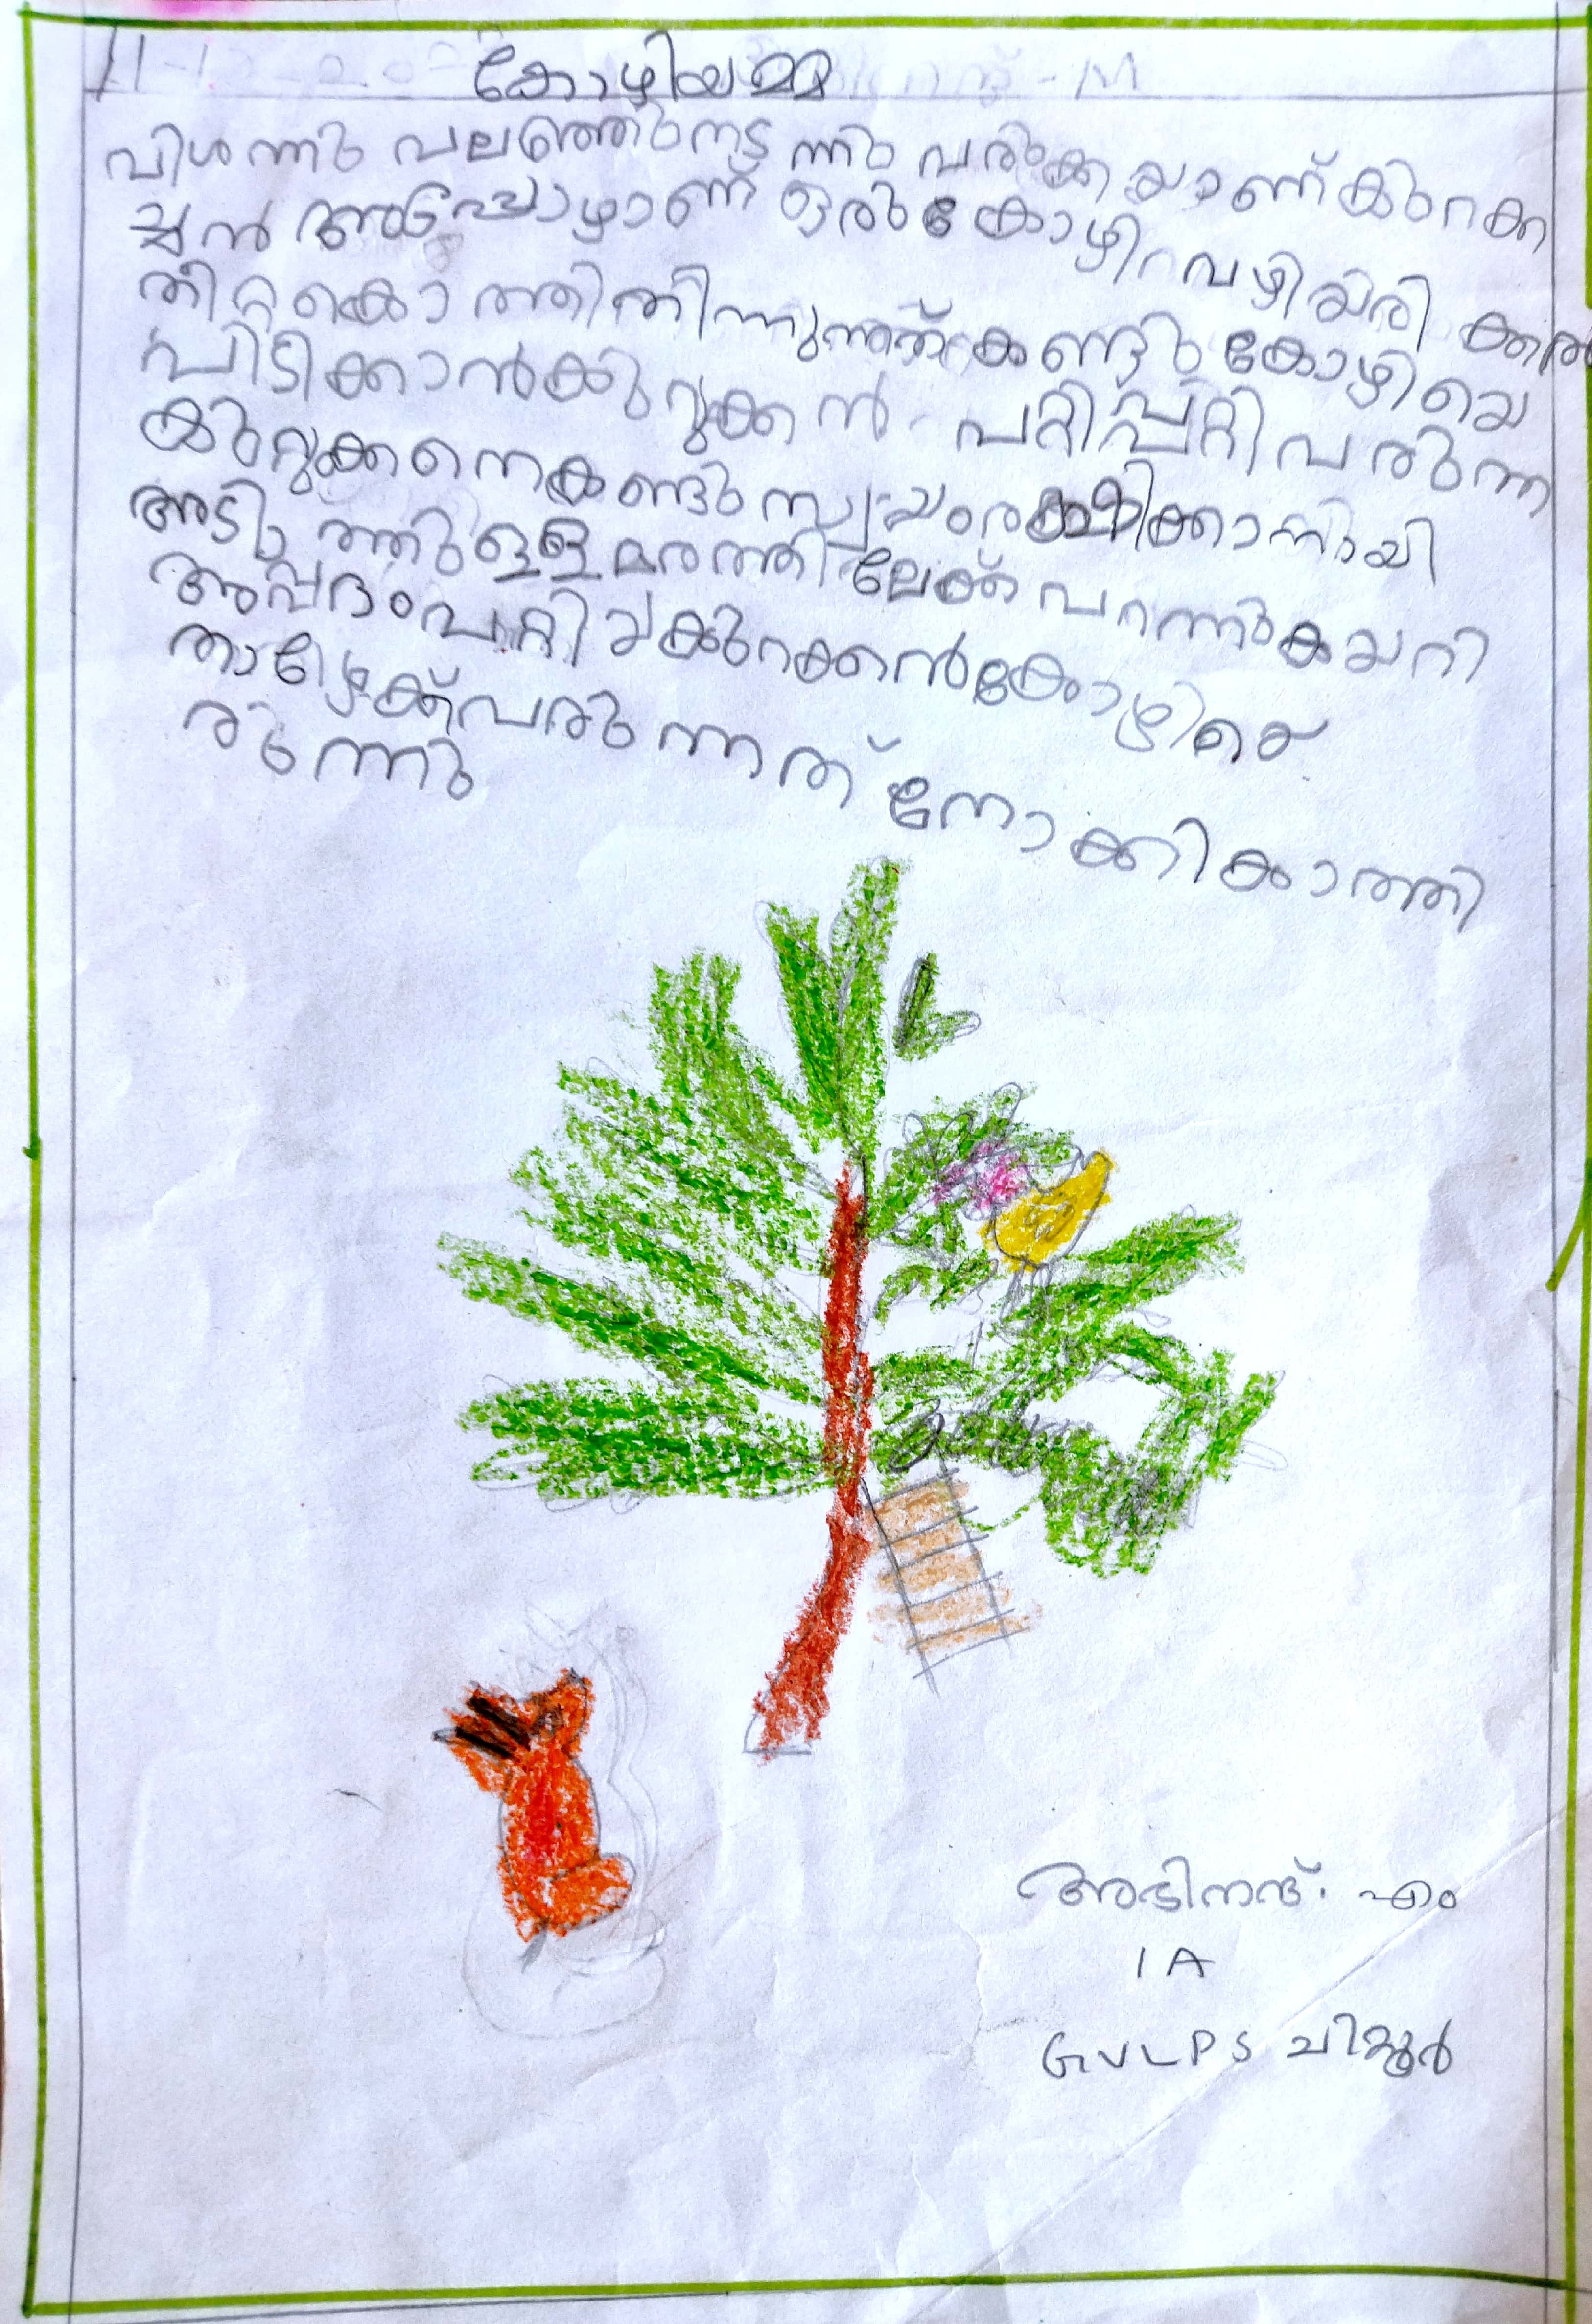 കോഴിയമ്മ
വിശന്നു വലഞ്ഞുനട ന്നു വരുകയാണ് കുറുക്ക
ച്ചൻ അപ്പോഴാണ് ഒരു കോഴി വഴിയരി കത്ത്
തീറ്റകൊത്തിതിന്നുന്നത് കണ്ടു കോഴിയെ
പിടിക്കാൻകുറുക്കൻ പറ്റിപ്പറ്റി വരുന്ന
കുറുക്കനെകണ്ടു സ്വയംരക്ഷിക്കാനായി
അടുത്തുള്ള മരത്തി ലേക്ക് പറന്നുകയറി
അപദ്ധംപറ്റിയകുറക്കൻകോഴിയെ
താഴേക്ക്വരുന്നത് നോക്കികാത്തി
രുന്നു
അഭിനന്ദ്. എം
1 A
GVLPS ചിറ്റൂർ